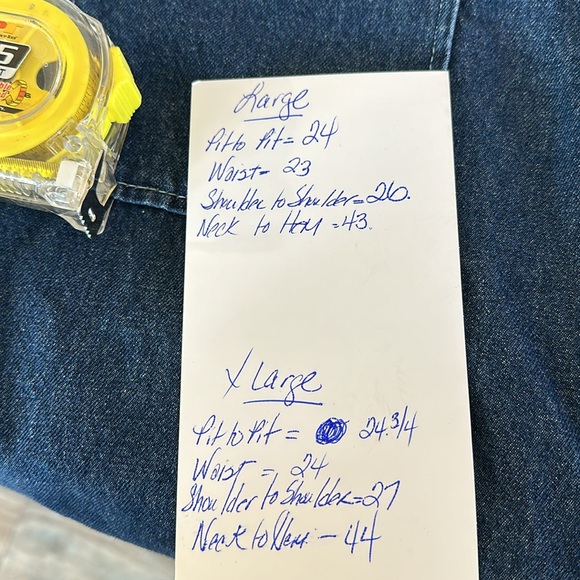 5
Large
Pit to Pit = 24
Waist - 23
Shoulder to Shoulder = 26.
Neck to Hem = 43.
X Large
Pit to Pit = 24.3/4
Waist = 24
Shoulder to Shoulder = 27
Neck to Hem - 44